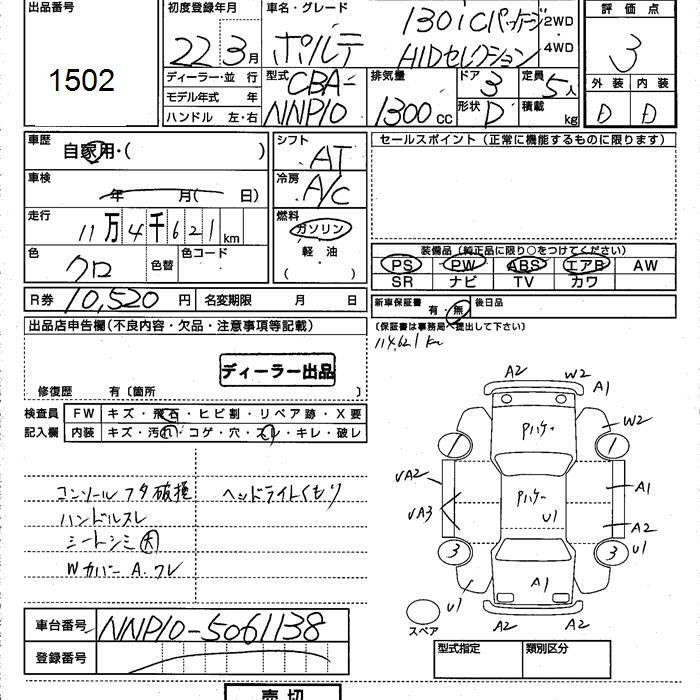 出品番号
1502
初度登録年月
22 3月
車名・グレード
ポルテ
130i Cパッケージ
HIDセレクション
2WD
4WD
評価点
3
外装 内装
D D
ディーラー・並行
モデル年式 年
ハンドル 左・右
型式 CBA-
NNP10
排気量
1300cc
ドア 3
形状 D
定員 5人
積載 kg
車歴 自家用・( )
車検 年 月( 日)
走行
11万4千621km
色 クロ 色替
色コード
R券 10,520円
名変期限 月 日
シフト
AT
冷房
A/C
燃料
ガソリン
軽・油
( )
セールスポイント(正常に機能するものに限ります)
装備品(純正品に限り○をつけてください)
PS PW ABS エアB AW
SR ナビ TV カワ
新車保証書 有・無 後日品
(保証書は事務局へ提出して下さい)
114,621km
出品店申告欄(不良内容・欠品・注意事項等記載)
ディーラー出品
修復歴 有〔箇所 〕
検査員
記入欄
FW キズ・飛石・ヒビ割・リペア跡・X要
内装 キズ・汚れ・コゲ・穴・スレ・キレ・破レ
コンソールフタ破損
ヘッドライトくもり
ハンドルスレ
シートシミ大
Wカバー A.ワレ
A2 W2 A1
W2
Pハケー
1 1
√A2
√A3
Pハケー
U1
A1
A2
3 3 U1
A1
U1
A2 A2
スペア
車台番号 NNP10-5061138
登録番号
型式指定 類別区分
売切